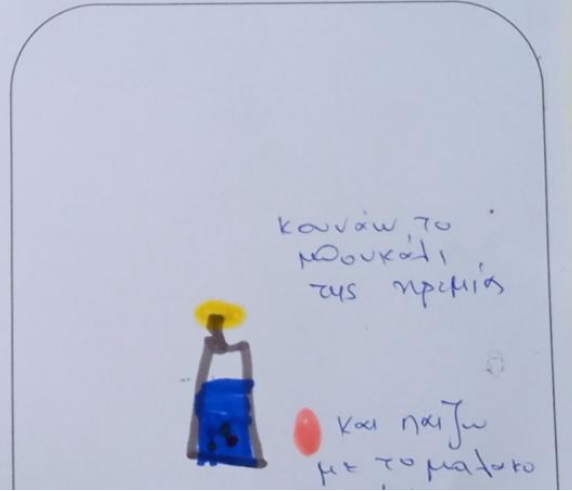 κουνάω το
μπουκάλι
της ηρεμίας
και παίζω
με το μαλακο